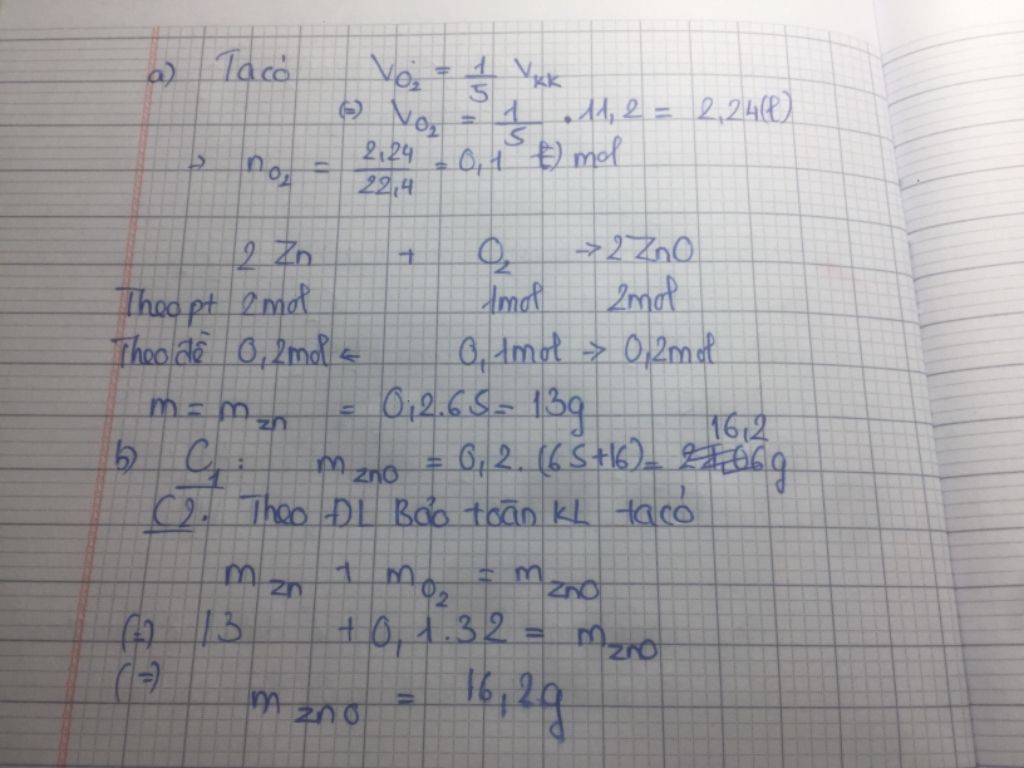 a) Ta có V_O₂ = 1/5 V_KK
(=) V_O₂ = 1/5 . 11,2 = 2,24(ℓ)
→ n_O₂ = 2,24/22,4 = 0,1 mol
2 Zn + O₂ → 2 ZnO
Theo pt 2mol 1mol 2mol
Theo đề 0,2mol ← 0,1mol → 0,2mol
m = m_zn = 0,2.65 = 13g
b) C₁: m_zno = 0,2. (65+16) = 16,2 g
C2. Theo ĐL Bảo toàn KL ta có
m_zn + m_O₂ = m_zno
(=) 13 + 0,1.32 = m_zno
(=) m_zno = 16,2g